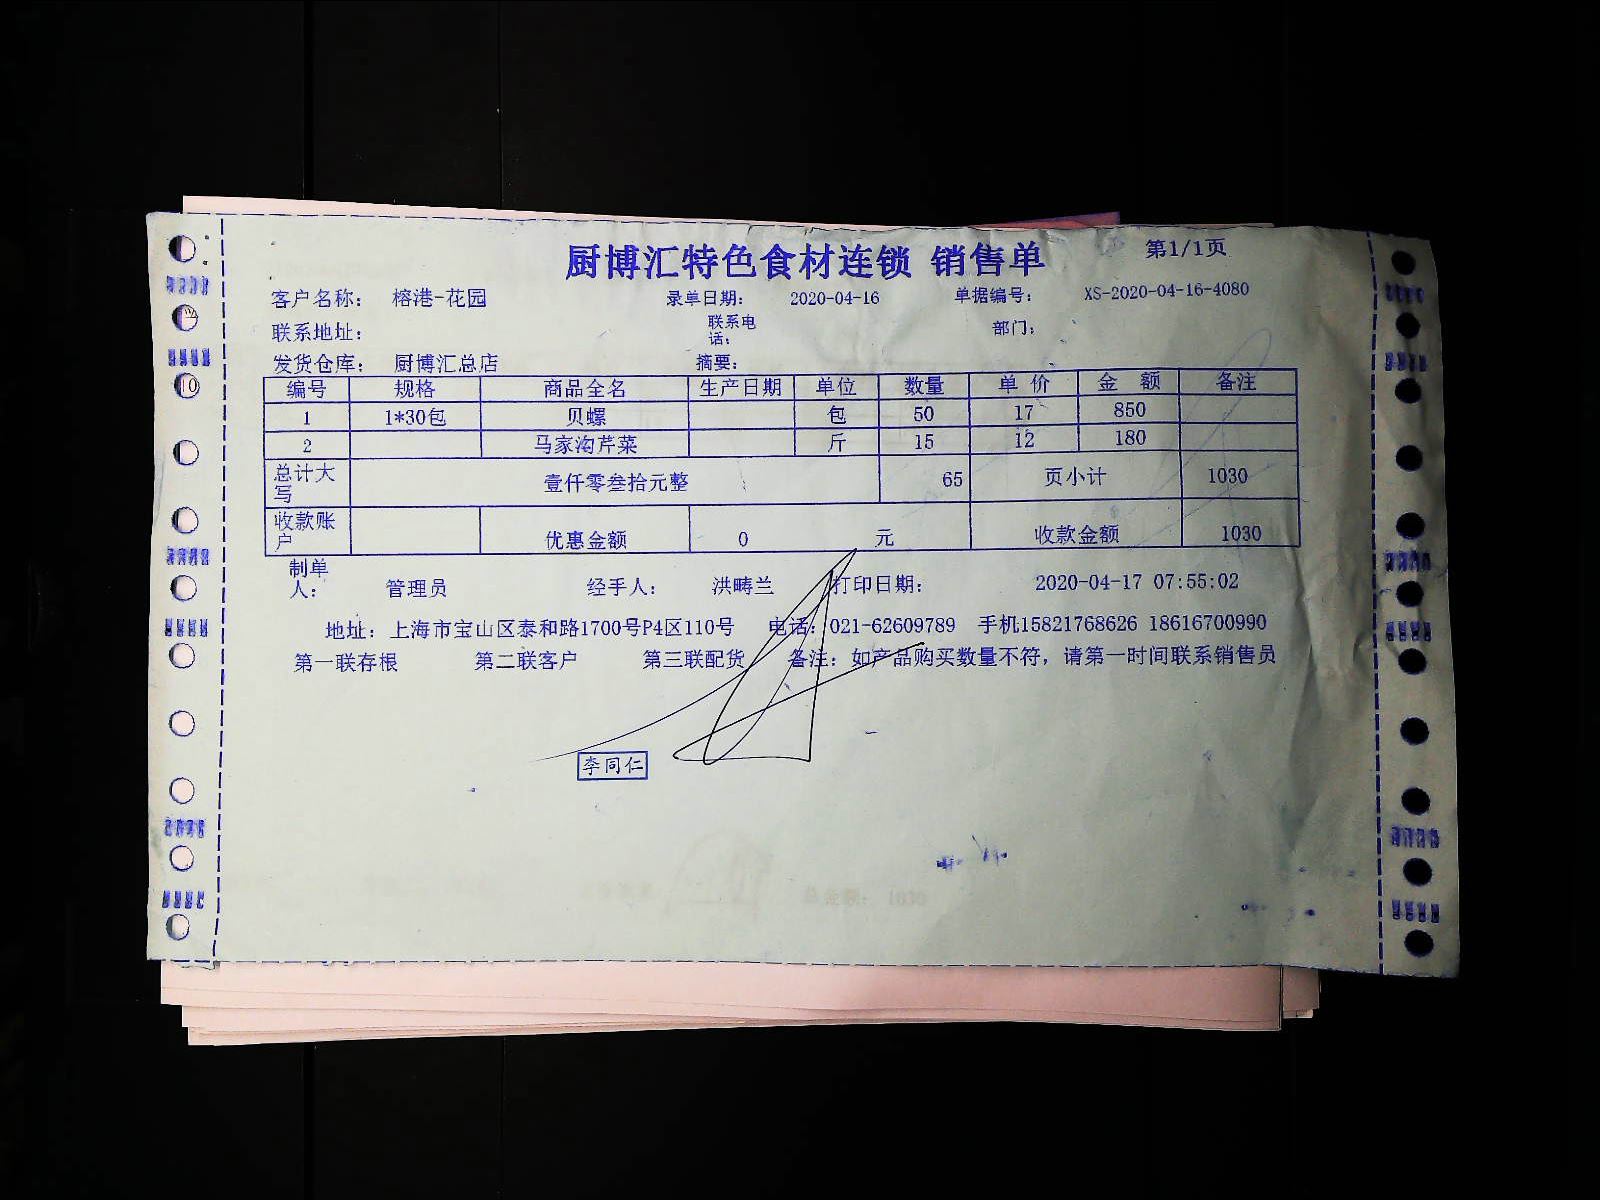 厨博汇特色食材连锁 销售单 第1/1页
客户名称: 榕港-花园 录单日期: 2020-04-16 单据编号: XS-2020-04-16-4080
联系地址: 联系电话: 部门:
发货仓库: 厨博汇总店 摘要:
编号 规格 商品全名 生产日期 单位 数量 单 价 金 额 备注
1 1*30包 贝螺 包 50 17 850
2 马家沟芹菜 斤 15 12 180
总计大写 壹仟零叁拾元整 65 页小计 1030
收款账户 优惠金额 0 元 收款金额 1030
制单人: 管理员 经手人: 洪畴兰 打印日期: 2020-04-17 07:55:02
地址: 上海市宝山区泰和路1700号P4区110号 电话: 021-62609789 手机15821768626 18616700990
第一联存根 第二联客户 第三联配货 备注: 如产品购买数量不符, 请第一时间联系销售员
李同仁